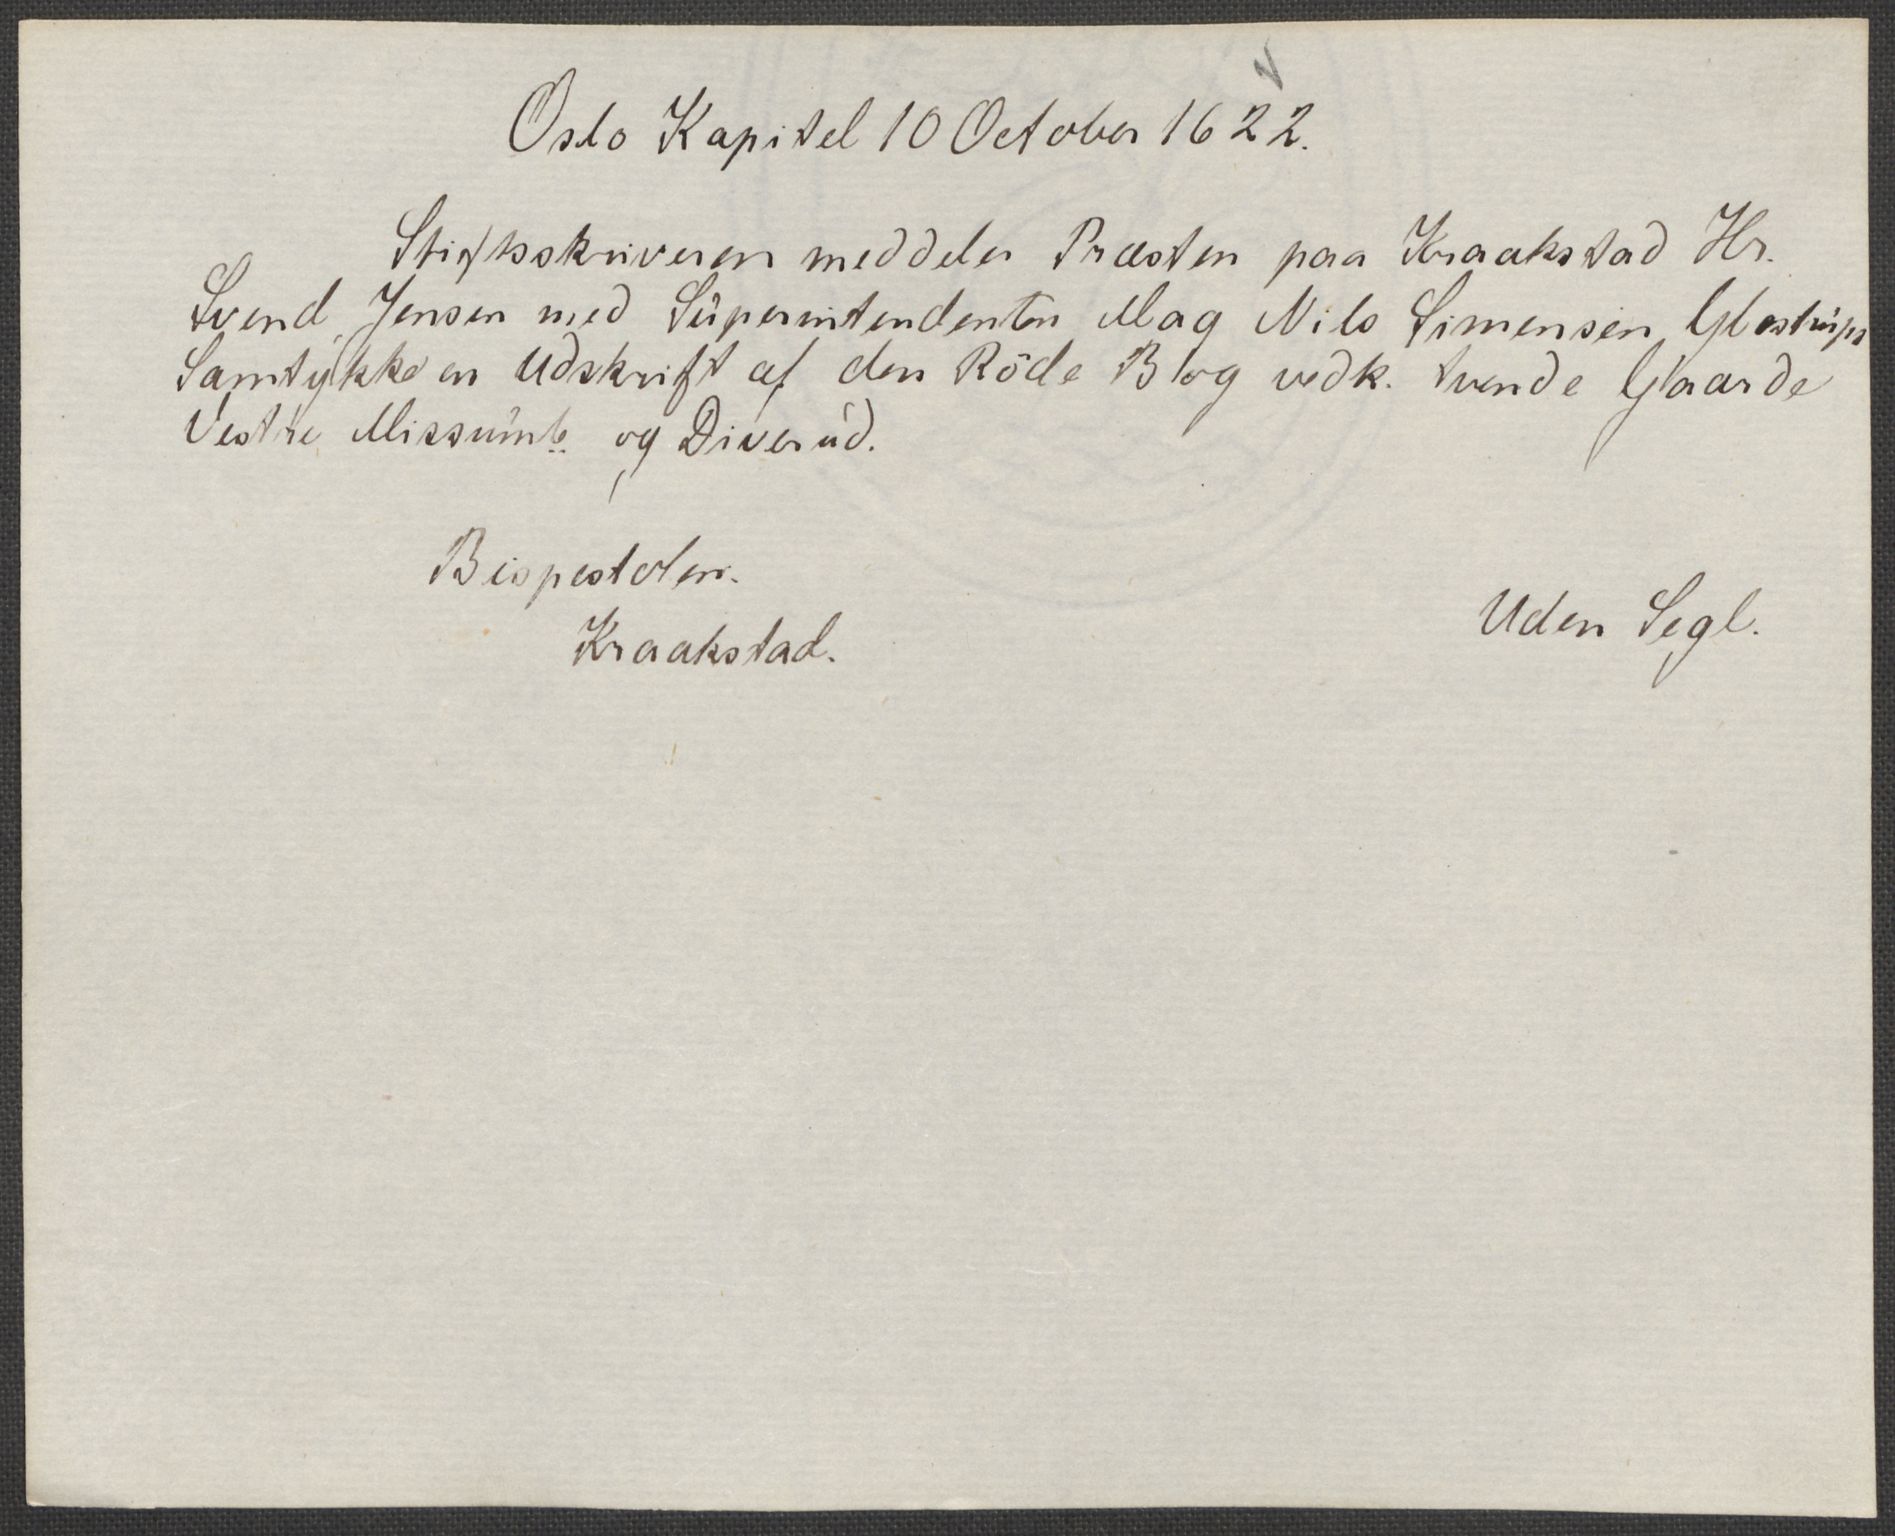 Oslo Kapitel 10 October 1622.
Stiftsskriveren meddeler Præsten paa Kraakstad Hr.
Svend Jensen med Superintendenten Mag Nils Simensen Glostrups
Samtykke en Udskrift af den Röde Bog vedk. tvende Gaarde
Vestre og Diverud.
Bispestolen.
Kraakstad.
Uden Segl.